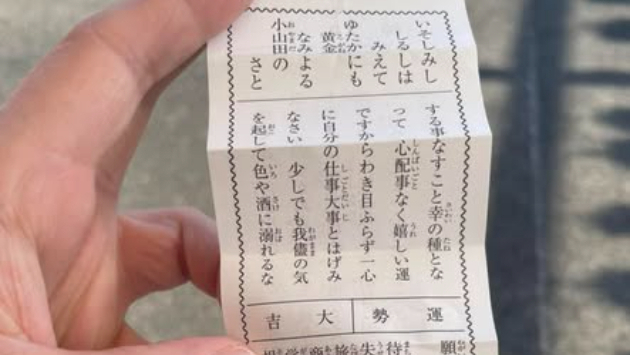 いそしみし
しるしは
みえて
ゆたかにも
黄金
なみよる
小山田の
さと
する事なすこと幸の種とな
つて心配事なく嬉しい運
ですからわき目ふらず一心
に自分の仕事大事とはげみ
なさい 少しでも我儘の気
を起して色や酒に溺れるな
運勢 大吉
願
待
失
旅
商